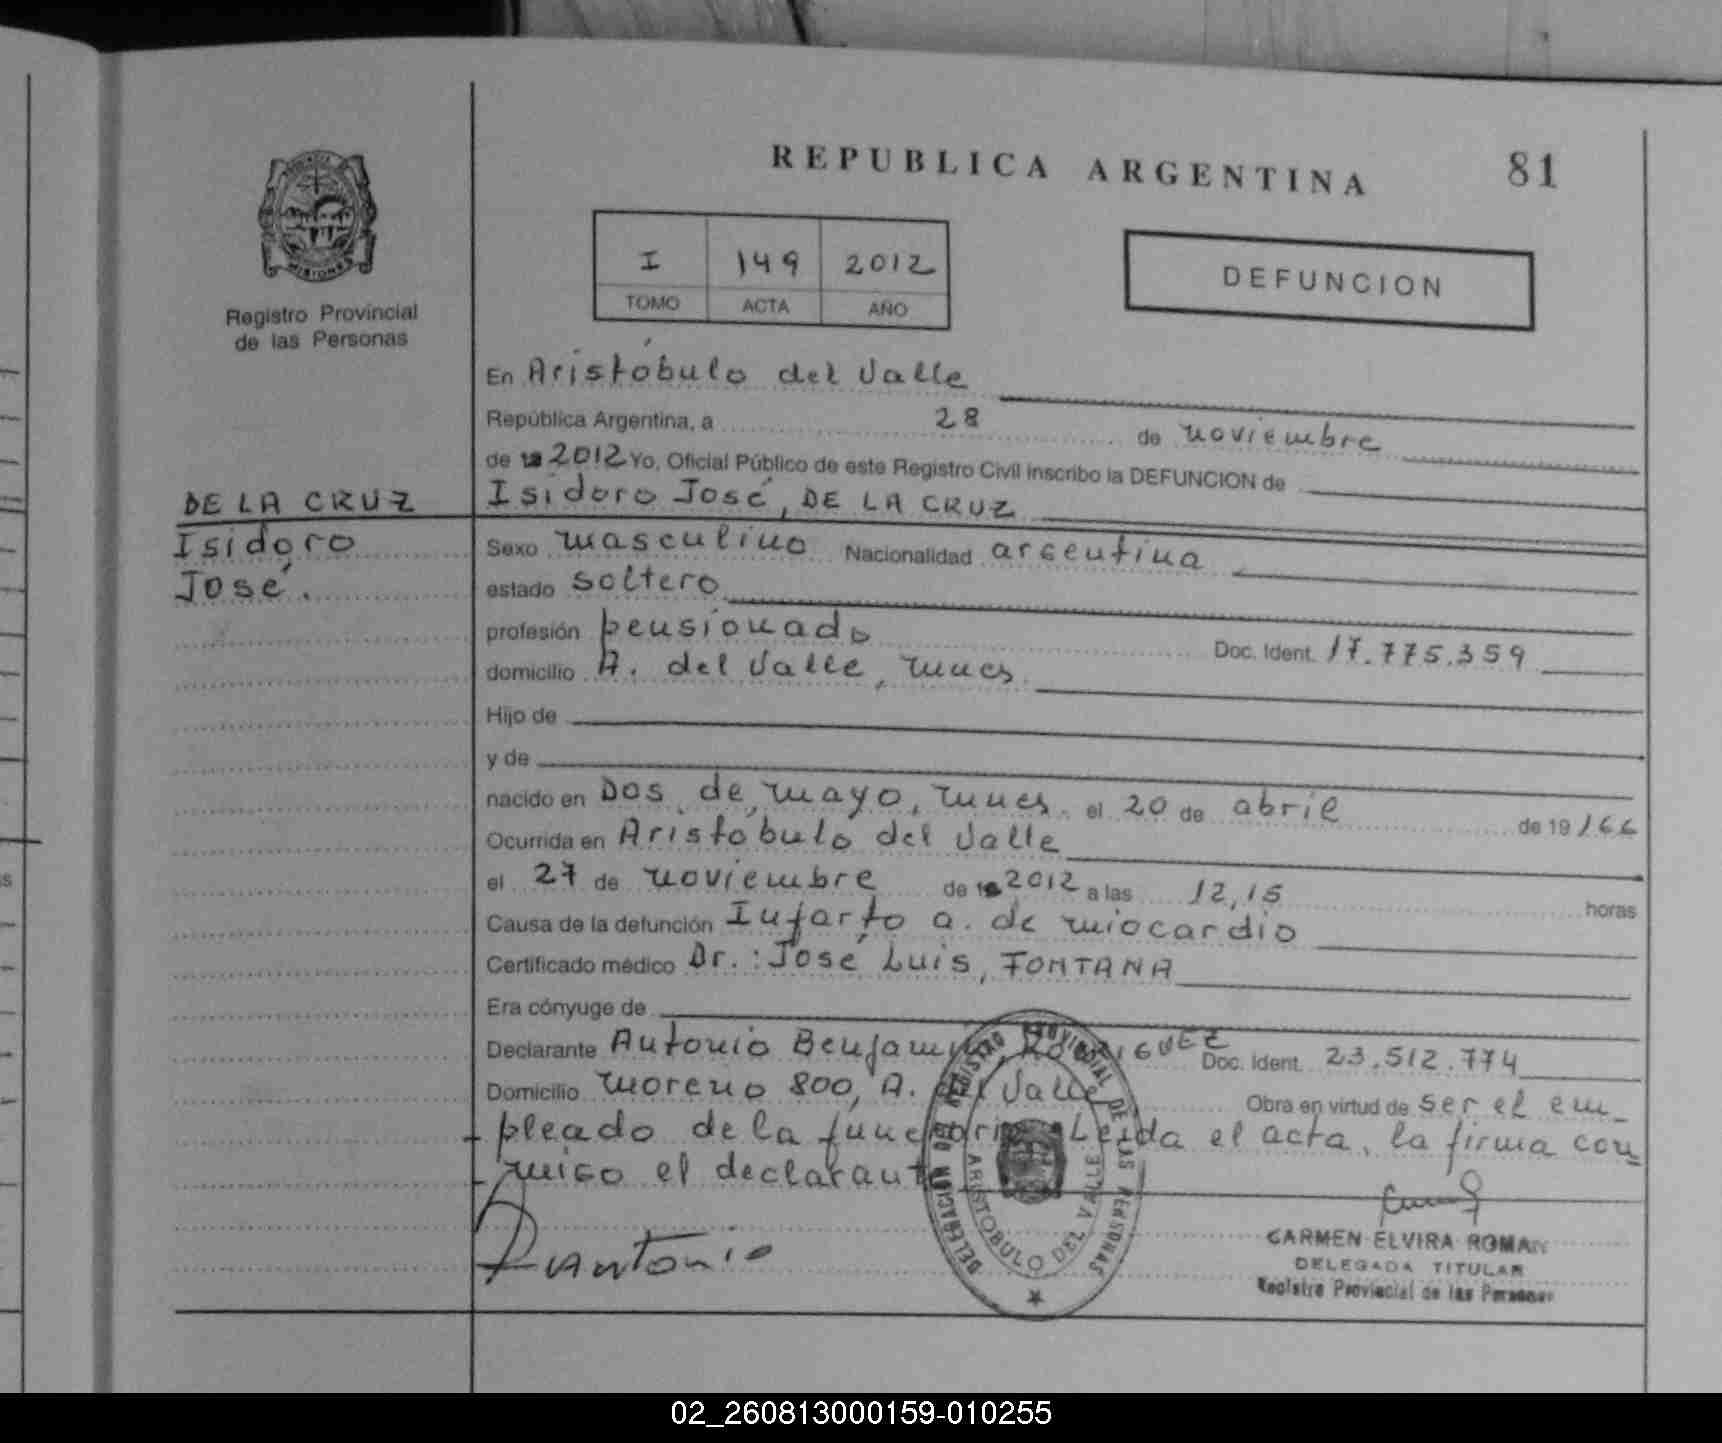 REPUBLICA ARGENTINA
81
MISIONES
Registro Provincial
de las Personas
I 149 2012
TOMO ACTA AÑO
DEFUNCION
En Aristóbulo del Valle
República Argentina, a 28 de noviembre
de 2012 Yo, Oficial Público de este Registro Civil inscribo la DEFUNCION de
DE LA CRUZ
Isidoro
José.
Isidoro José, DE LA CRUZ
Sexo masculino Nacionalidad argentina
estado soltero
profesión pensionado Doc. Ident. 17.775.359
domicilio A. del Valle, mnes
Hijo de
y de
nacido en Dos de mayo, mnes. el 20 de abril de 19/66
Ocurrida en Aristóbulo del Valle
el 27 de noviembre de 2012 a las 12,15 horas
Causa de la defunción Infarto a. de miocardio
Certificado médico Dr.: José Luis, FONTANA
Era cónyuge de
Declarante Antonio Benjamin, RODRIGUEZ Doc. Ident. 23.512.774
Domicilio Moreno 800, A. del Valle Obra en virtud de ser el em_
pleado de la funeraria. Leida el acta, la firma con=
migo el declarante
DELEGACION DEL REGISTRO PROVINCIAL DE LAS PERSONAS
ARISTOBULO DEL VALLE
R Antonio
CARMEN ELVIRA ROMAN
DELEGADA TITULAR
Registro Provincial de las Personas
02_260813000159-010255